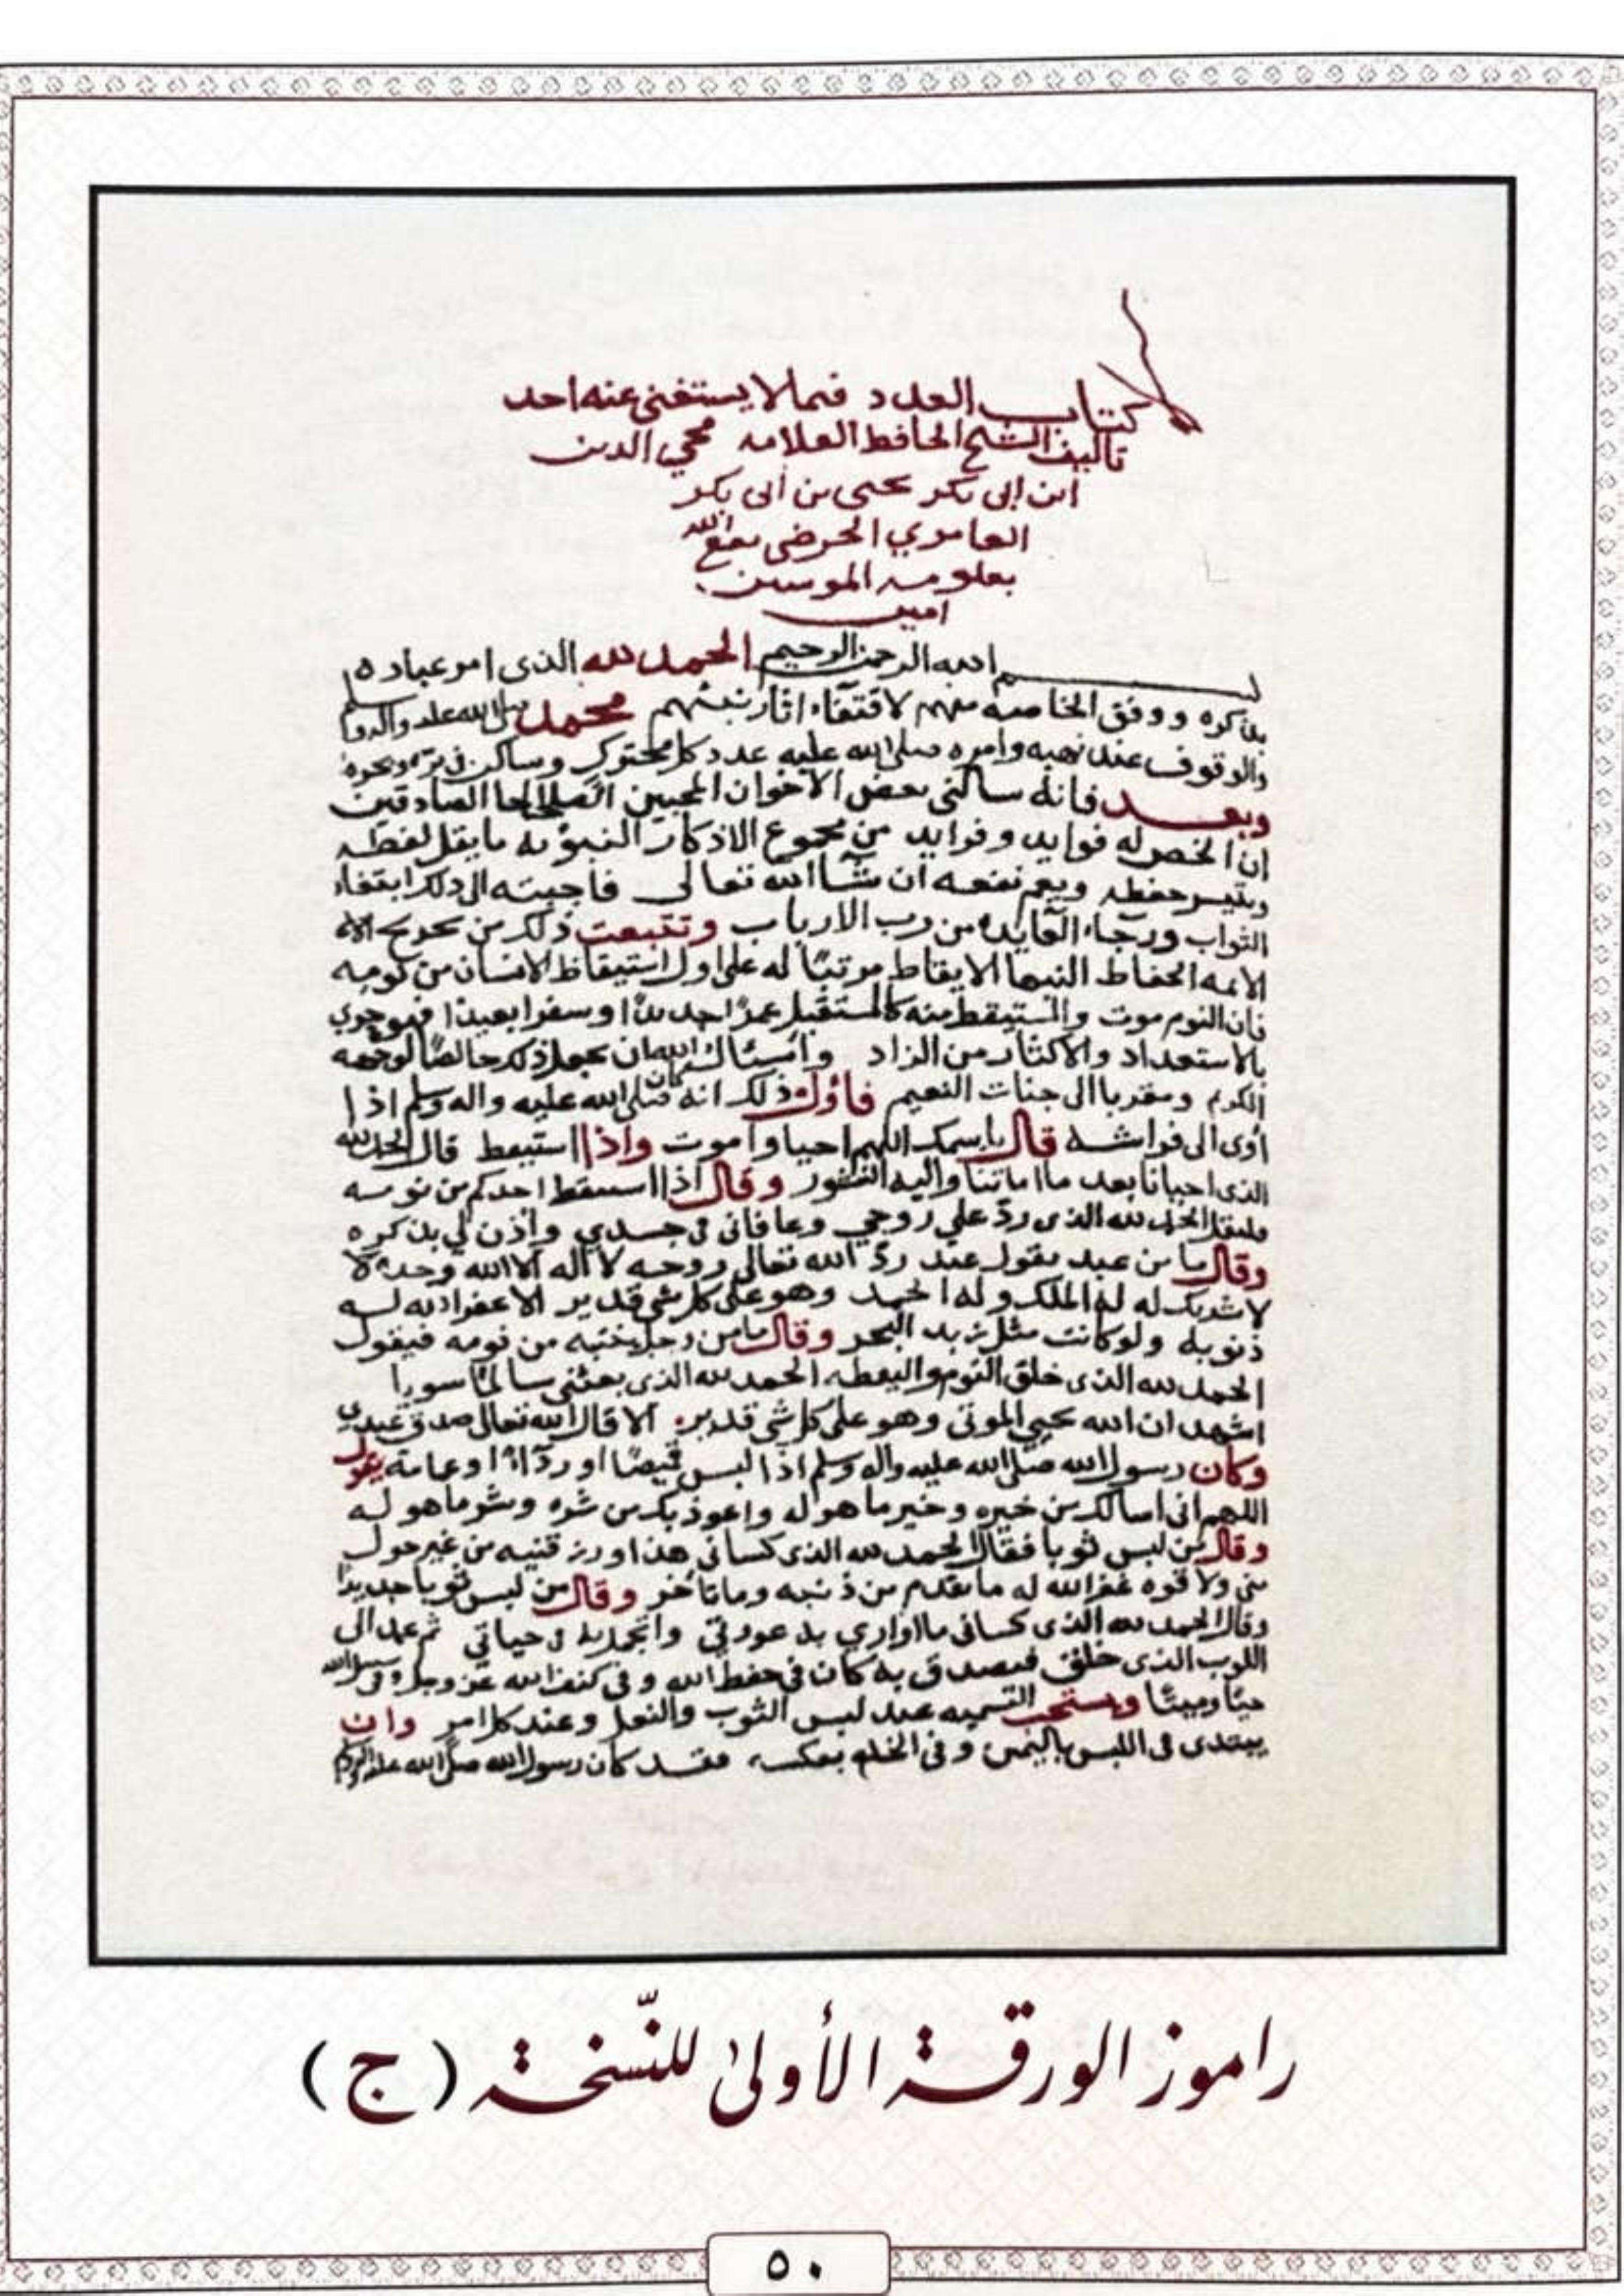 كتاب العدد فيما لا يستغنى عنه احد
تاليف الشيخ الحافظ العلامه محيي الدين
ابن ابي بكر يحيى بن ابي بكر
العامري الحرضي نفع الله
بعلومه المومنين
امين
بسم الله الرحمن الرحيم الحمد لله الذي امر عباده
بذكره ووفق الخاصه منهم لاقتفاء اثار نبيهم محمد صلى الله عليه واله وسلم
والوقوف عند نهيه وامره صلى الله عليه عدد كل محترك وساكن في بره وبحره
وبعد فانه سالني بعض الاخوان المحبين الصادقين
ان الخص له فوايد وفرايد من مجموع الاذكار النبويه ما يقل لفظه
ويتيسر حفظه ويعم نفعه ان شا الله تعالى فاجبته الى ذلك ابتغاء
الثواب ورجاء الفايده من رب الارباب وتتبعت ذلك من تخريج
الايمه الحفاظ النبها الايقاظ مرتبًا له على اول استيقاظ الانسان من نومه
فان النوم موت والمستيقظ منه كالمستقبل عمرًا جديدًا وسفرا بعيدًا فهو حري
بالاستعداد والاكثار من الزاد واسئال الله ان يجعل ذلك خالصًا لوجهه
الكريم ومقربا الى جنات النعيم فاول ذلك انه كان صلى الله عليه واله وسلم اذا
أوى الى فراشه قال باسمك اللهم احيا واموت واذا استيقظ قال الحمد لله
الذي احيانا بعد ما اماتنا واليه النشور وقال اذا استيقظ احدكم من نومه
فليقل الحمد لله الذي ردّ علي روحي وعافاني في جسدي واذن لي بذكره
وقال ما من عبد يقول عند ردّ الله تعالى روحه لا اله الا الله وحده لا
لا شريك له له الملك وله الحمد وهو على كل شي قدير الا غفر الله له
ذنوبه ولو كانت مثل زبد البحر وقال ما من رجل ينتبه من نومه فيقول
الحمد لله الذي خلق النوم واليقظه الحمد لله الذي بعثني سالمًا سويا
اشهد ان الله يحيي الموتى وهو على كل شي قدير الا قال الله تعالى صدق عبدي
وكان رسول الله صلى الله عليه واله وسلم اذا لبس قميصًا او ردآءًا او عمامة يقول
اللهم اني اسالك من خيره وخير ما هو له واعوذ بك من شره وشر ما هو له
وقال من لبس ثوبا فقال الحمد لله الذي كساني هذا ورزقنيه من غير حول
مني ولا قوه غفر الله له ما تقدم من ذنبه وما تاخر وقال من لبس ثوبا جديدًا
وقال الحمد لله الذي كساني ما اواري به عورتي واتجمل به في حياتي ثم عمد الى
الثوب الذي خلق فتصدق به كان في حفظ الله وفي كنف الله عز وجل وفي ستر الله
حيًا وميتًا ويستحب التسميه عند لبس الثوب والنعل وعند كل امر وان
يبتدي في اللبس باليمين وفي الخلع بعكسه فقد كان رسول الله صلى الله عليه واله وسلم
راموز الورقة الأولى للنّسخة (ج)
٥٠